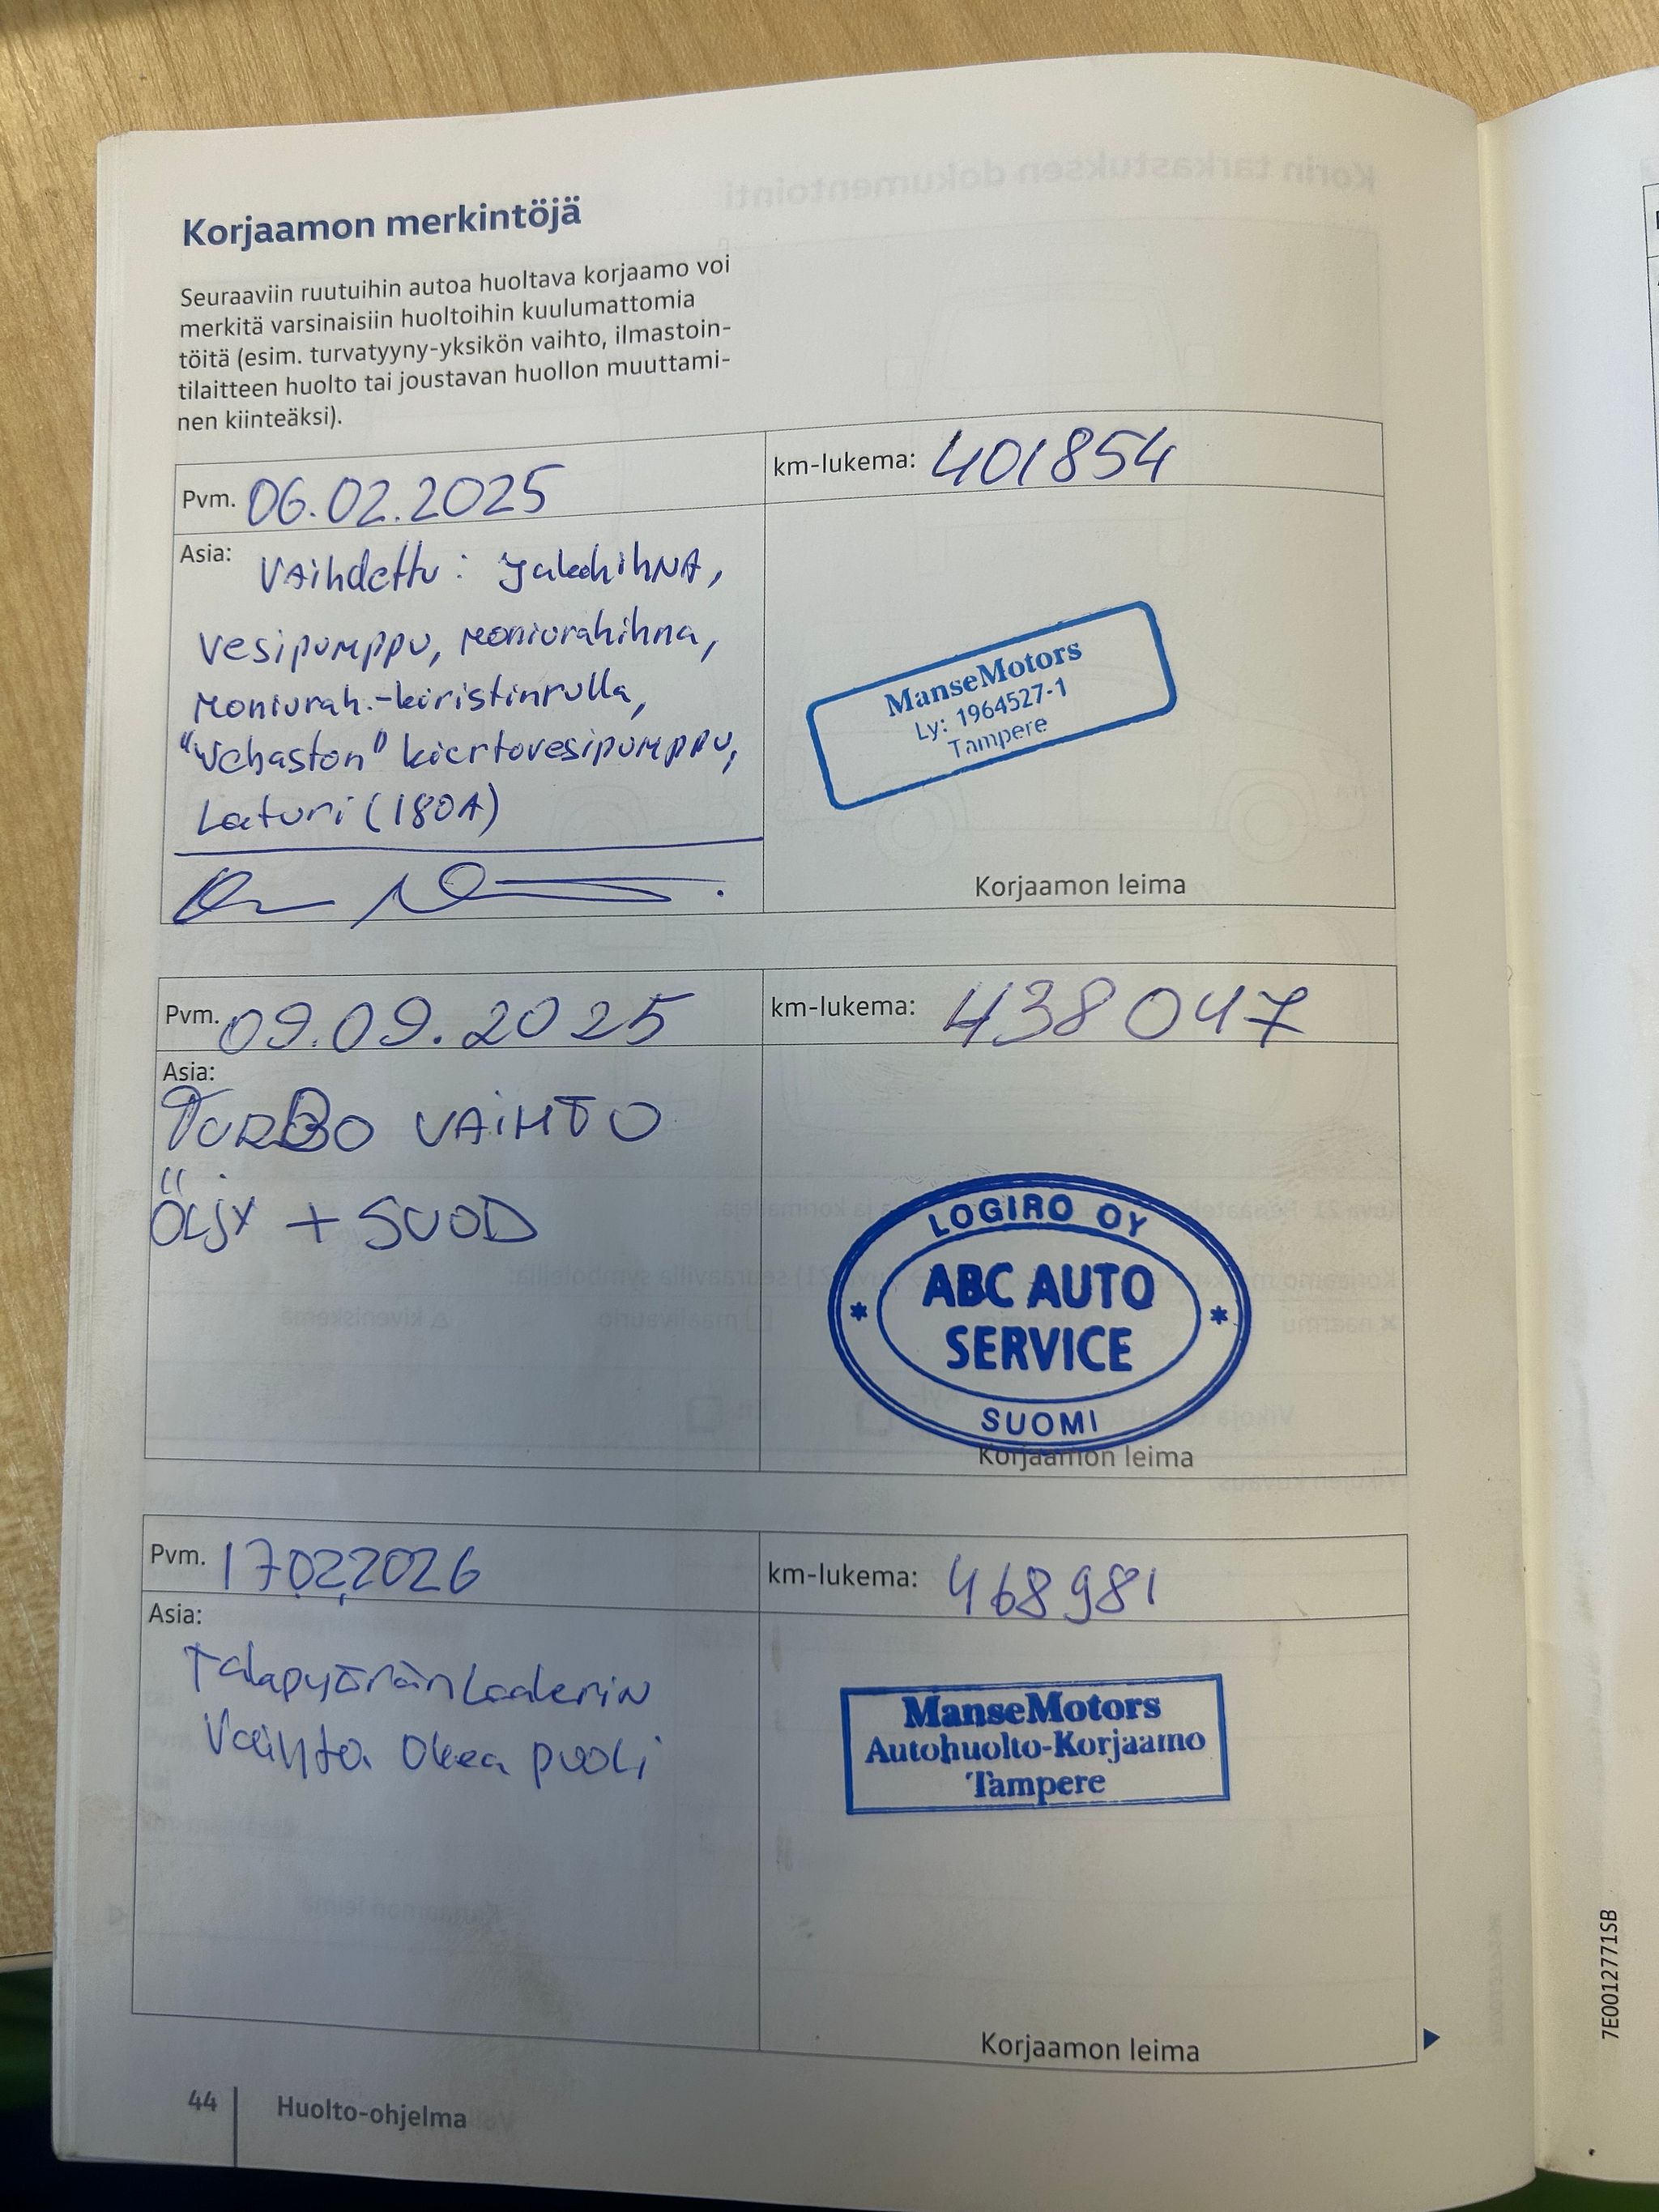 Korjaamon merkintöjä
Seuraaviin ruutuihin autoa huoltava korjaamo voi
merkitä varsinaisiin huoltoihin kuulumattomia
töitä (esim. turvatyyny-yksikön vaihto, ilmastoin-
tilaitteen huolto tai joustavan huollon muuttami-
nen kiinteäksi).
Pvm. 06.02.2025
km-lukema: 401854
Asia: Vaihdettu: jakohihna,
vesipumppu, moniurahihna,
moniurah.-kiristinrulla,
"Webaston" kiertovesipumppu,
Laturi (180A)
ManseMotors
Ly: 1964527-1
Tampere
Korjaamon leima
Pvm. 09.09.2025
km-lukema: 438047
Asia:
TURBO VAIHTO
ÖLJY + SUOD
LOGIRO OY
ABC AUTO
SERVICE
SUOMI
Korjaamon leima
Pvm. 17.02.2026
km-lukema: 468981
Asia:
Takapyörän Laakerin
Vaihto Oikea puoli
ManseMotors
Autohuolto-Korjaamo
Tampere
Korjaamon leima
44 Huolto-ohjelma
7E0012771SB